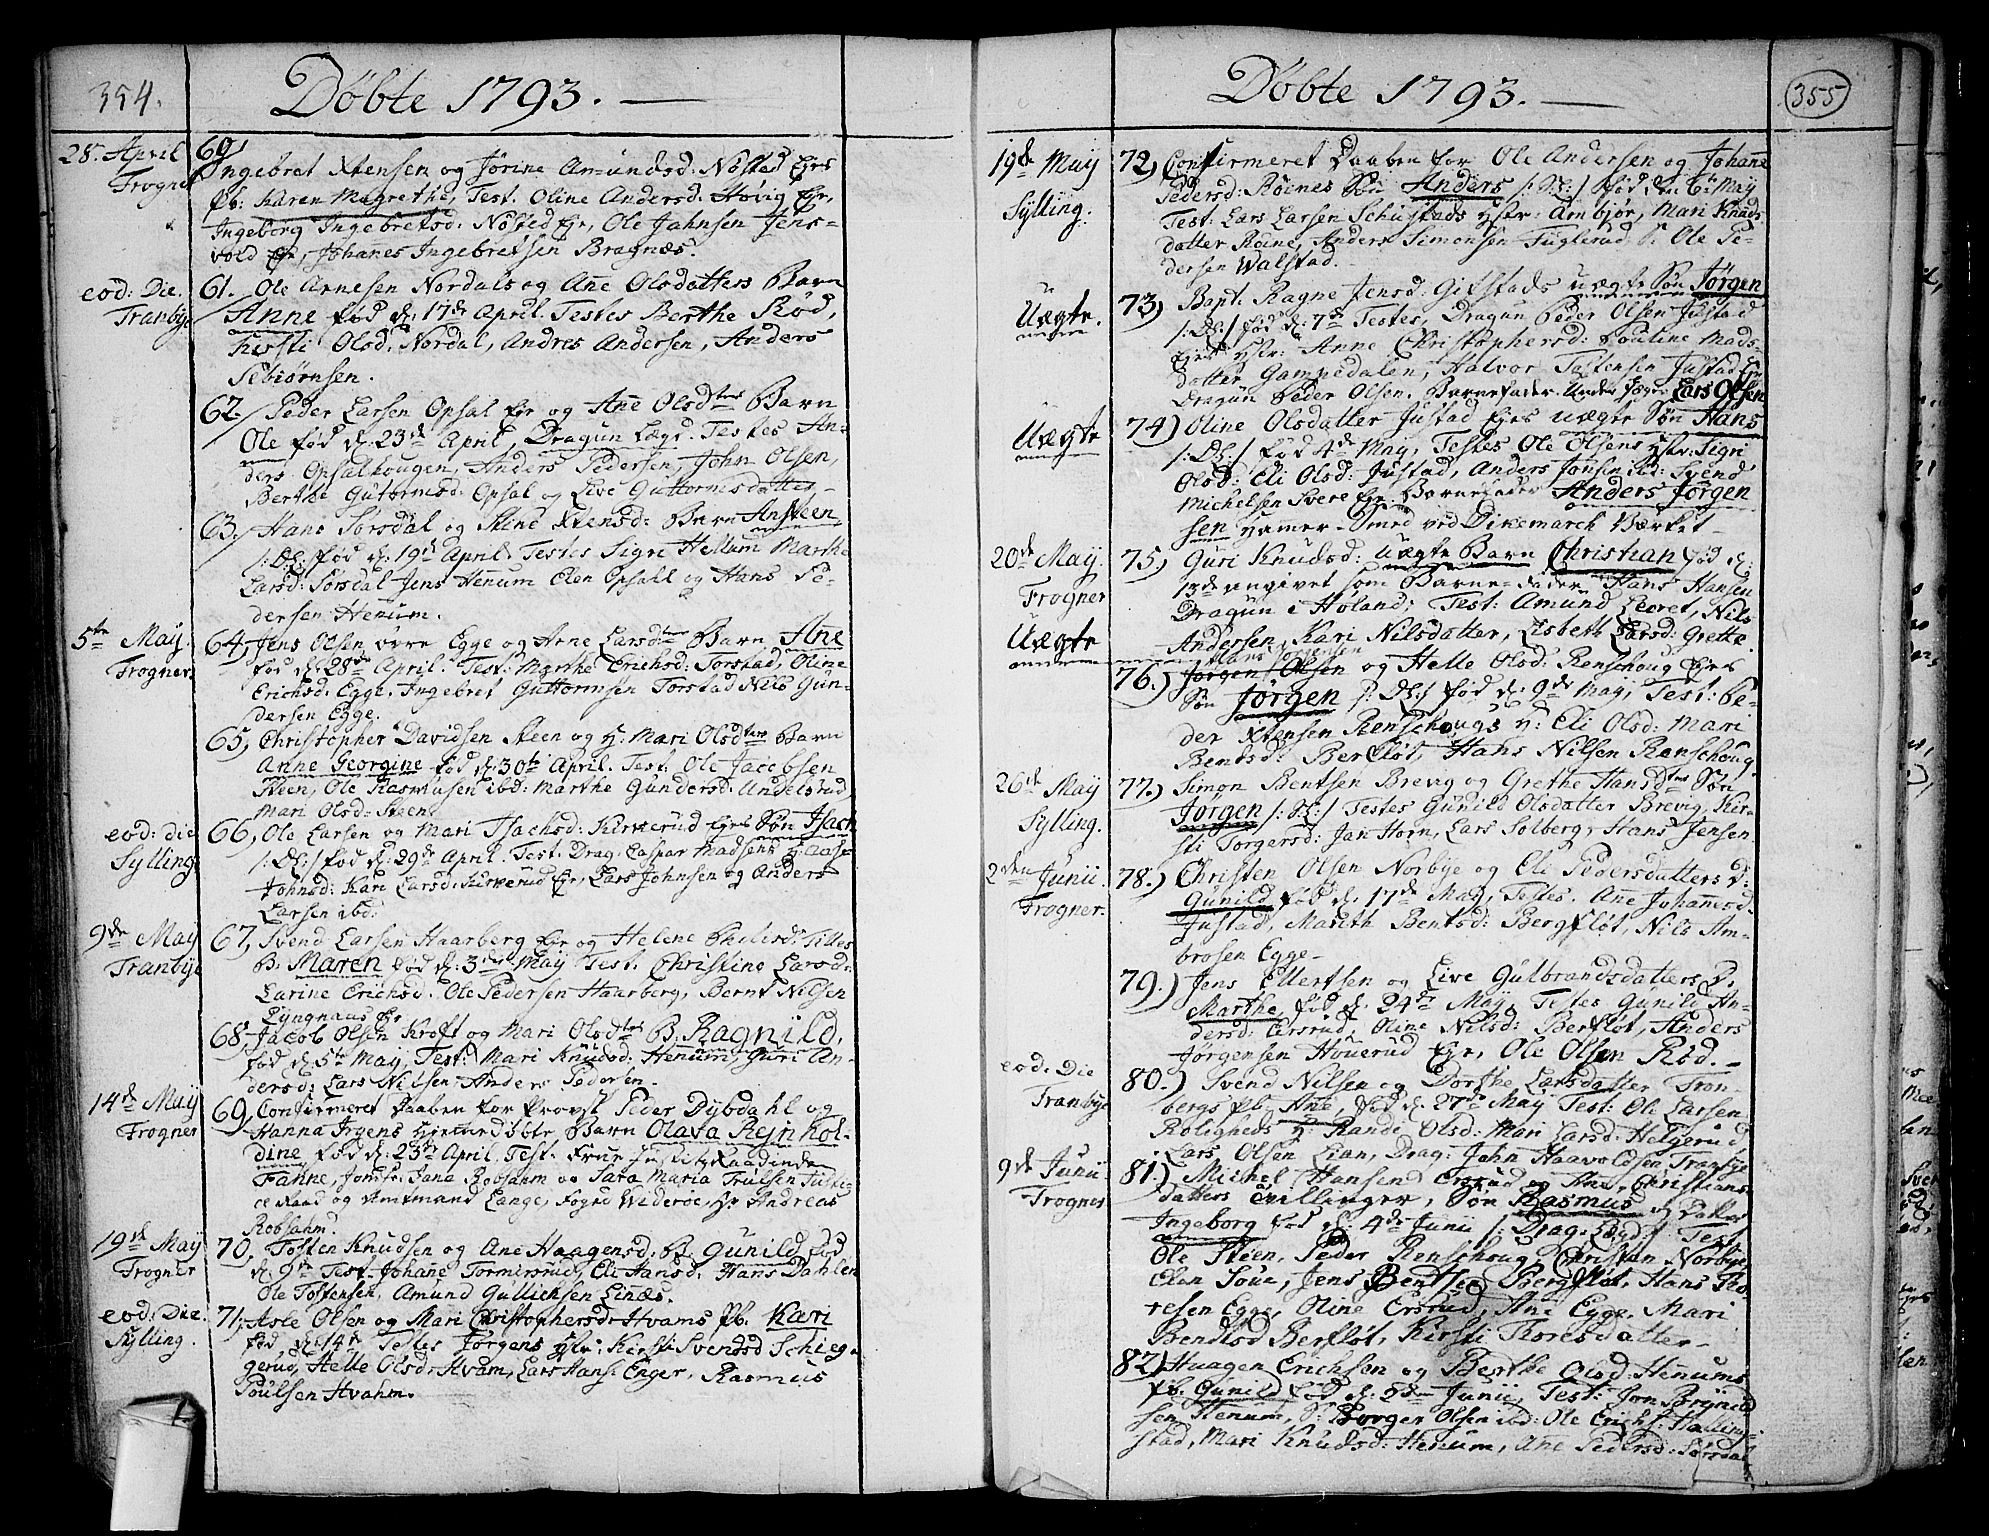 354.
Döbte 1793.
28. April
Frogner
60)
Ingebret Xtensen og Jörine Amundsd: Nösted Ejes
Pb: Karen Magrethe, Test. Oline Andersd. Hövig Eje,
Ingeborg Ingebretsd: Nösted Eje, Ole Jahnsen Jens-
vold Eje, Johanes Ingebretsen Bragnæs.
eod: Die.
Tranbye
61. Ole Arnesen Nordals og Ane Olsdatters Barn
Anne fød d: 17de April. Testes Berthe Röd,
Kiersti Olsd. Nordal, Andres Andersen, Anders
Sebiörnsen.
62. Peder Larsen Opsal Eje og Ane Olsdtrs Barn
Ole fød d: 23de April, Dragun Lægd. Testes An-
ders Opsalhougen, Anders Pedersen, John Olsen,
Berthe Gutormsd: Opsal og Live Guttormsdatter
63. Hans Sørsdal og Stene Xtensd: Barn Ansteen
/: DS:/ fød d: 19de April. Testes Sigri Hellum Marthe
Larsd: Sørsdal Jens Henum Elen Opsahl og Hans Pe-
dersen Henum.
5te May.
Frogner.
64, Jens Olsen övre Egge og Arne Larsdtrs Barn Ane
fød d: 28de April. Test: Marthe Erichsd: Torstad, Oline
Erichsd: Egge, Ingebret Guttormsen Torstad Nils Gun-
dersen Egge.
65, Christopher Davidsen Steen og H: Mari Olsdtrs Barn
Anne Georgine fød d: 30te April. Test: Ole Jacobsen
Steen, Ole Rasmusen ibd: Marthe Gundersd. Undelsrud
Mari Olsd: Steen.
eod: die
Sylling
66, Ole Larsen og Mari Isachsd: Kirverud Ejes Søn Isach
/: DS:/ fød d: 29de April. Test: Drag: Caspar Madsens H: Aase
Johnsd: Kari Larsd: Kirverud Eje, Lars Johnsen og Anders
Larsen ibd:
9de May
Tranbye
67, Svend Larsen Haarberg Eje og Helene
B: Maren fød d: 3de May Test. Christine Larsd:
Larine Erichsd. Ole Pedersen Haarberg, Bernt Nilsen
Lyngnaas Eje
68, Jacob Olsen Kroft og Mari Olsdtrs B: Ragnild,
fød d: 5te May, Test: Mari Knudsd: Henum, Guri An-
dersd: Lars Nilsen Anders Pedersen.
14de May
Frogner
69, Confirmeret Daaben for Provst Peder Dybdahl og
Hanna Irgens hjemmedöbte Barn Olava Rejnhol-
dine fød d: 23de April. Test: Frue Justitz Raadinde
Fahne, Jomfr: Jana Robsahm og Sara Maria Trulsen Justi-
ce Raad og Amtmand Lange, Foged Wideröe, Hr Andreas
Robsahm.
19de May
Frogner
70, Tosten Knudsen og Ane Haagensd: B: Gunild fød
d: 9de Test. Johane Tormersrud, Eli Hansd. Hans Dahlen
Ole Tostensen, Amund Gullichsen Linæs.
eod: Die.
Sylling.
71, Asle Olsen og Mari Christophersd: Hvams Pb. Kari
fød d: 14de Testes Jörgens Hstr: Kirsti Svendsd Schieg-
gerud, Helle Olsd: Hvam, Lars Hans: Enger, Rasmus
Poulsen Hvahm.
Döbte 1793.
355
19de May
Sylling.
72) Confirmeret Daaben for Ole Andersen og Johane
Pedersd: Röenes Søn Anders /: DS:/ fød den 6te May
Test: Lars Larsen Schustads Hstr: Ambjør, Mari Knuds
datter Röine, Anders Simonsen Fuglerud S: Ole Pe-
dersen Walstad.
Uægte.
73) Bapt. Ragne Jensd: Gilstads uægte Søn Jørgen
/: DS:/ fød d: 7de Testes, Dragun Peder Olsen Justad
Ejes Hstr: Anne Christophersd: Pouline Mads-
datter Gampedalen, Halvor Tostensen Justad Eje
Dragun Peder Olsen. Barnefader Lars Olsen
Uægte
74) Oline Olsdatter Justad Ejes uægte Søn Hans
/: DS:/ fød 4de May, Testes Ole Olsens Hstr: Sigri
Olsd: Eli Olsd: Justad, Anders Jonsen ibd: Svend
Michelsen Svere Eje. Barnefader Anders Jörgen
sen Hamer-Smed ved Dikemarck Værket
20de May.
Frogner
Uægte
75) Guri Knudsd: uægte Barn Christian fød d:
13de angivet som Barne-fader Hans Hansen
Dragun i Höland; Test: Amund Leeret, Nils
Andersen, Kari Nilsdatter, Lisbeth Larsd: Grette
Hans Jörgensen
76.) Jörgen Olsen og Helle Olsd: Renschoug Ejes
Søn Jörgen /: DS:/ fød d: 9de May, Test: Pe-
der Xtensen Renschougs H: Eli Olsd: Mari
Bendsd: Berfløt, Hans Nilsen Renschoug
26de May
Sylling.
77.) Simon Bentsen Brevig og Grethe Hansdtrs Søn
Jørgen /: DS:/ Testes Gunild Olsdatter Brevig, Kir-
sti Torgersd: Jan Horn, Lars Solberg, Hans Jensen
2den Junii.
Frogner.
78.) Christen Olsen Norbye og Eli Pedersdatters D:
Gunild fød d. 17de May, Testes. Ane Johansd.
Justad, Marith Bentsd: Bergfløt, Nils Am-
brosen Egge
79.) Jens Ellertsen og Live Gulbrandsdatters D.
Marthe, fød d. 24de May, Testes Gunild An-
dersd: Ersrud, Oline Nilsd: Berfløt, Anders
Jørgensen Houerud Eje, Ole Olsen Röd.
eod: Die
Tranbye
80.) Svend Nilsen og Dorthe Larsdatter Tran-
bergs Pb. Ane, fød d. 27de May Test: Ole Larsen
Roligheds H: Rande Olsd: Mari Larsd: Helgerud
Lars Olsen Lian, Drag: John Haavoldsen Tranbye
9de Junii
Frogner
81.) Michel Hansen Ersrud og Ane Christians
datters Tvillinger, Søn Rasmus og Datter
Ingeborg fød d: 4de Junii /: Drag: Lægd:/ Test.
Ole Steen, Peder Renschoug, Christen Norbye,
Elen Soue, Jens Bentsen Bergfløt, Hans Tho-
resen Egge, Oline Ersrud, Ane Egge, Mari
Bendtsd Berfløt, Kirsti Thoresdatter
82) Haagen Erichsen og Berthe Olsd: Henums
Pb. Gunild fød d. 5de Junii, Test: Jon Brynild
sen Henum, S: Borger Olsen ibd: Ole Erichs: Halling-
stad, Mari Knudsd: Henum, Ane Pedersd: Sørsdal